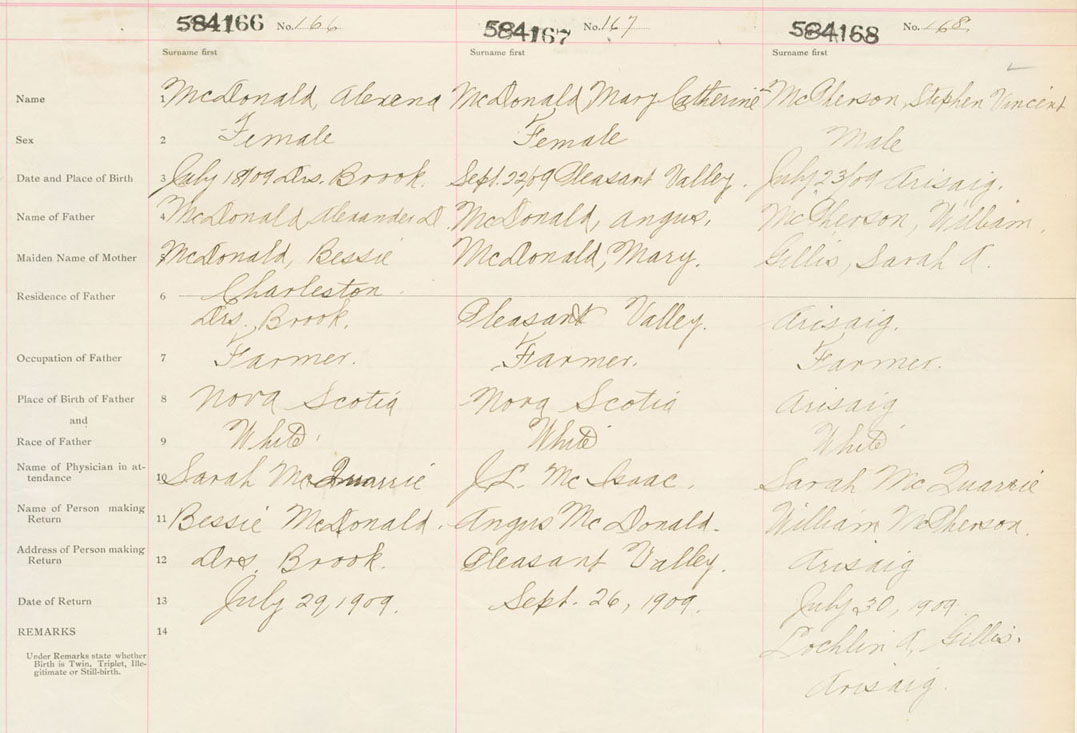 584166 No. 166 584167 No. 167 584168 No. 168
Surname first Surname first Surname first
Name 1 McDonald, Alexena McDonald, Mary Catherine McPherson, Stephen Vincent
Sex 2 Female Female Male
Date and Place of Birth 3 July 18/09 Drs. Brook. Sept. 22/09 Pleasant Valley. July 23/09 Arisaig.
Name of Father 4 McDonald, Alexander D. McDonald, Angus. McPherson, William.
Maiden Name of Mother 5 McDonald, Bessie McDonald, Mary. Gillis, Sarah A.
Charleston
Residence of Father 6 Drs. Brook. Pleasant Valley. Arisaig.
Occupation of Father 7 Farmer. Farmer. Farmer.
Place of Birth of Father 8 Nova Scotia Nova Scotia Arisaig
and
Race of Father 9 White White White
Name of Physician in at-
tendance 10 Sarah McQuarrie J.L. McIsaac. Sarah McQuarrie
Name of Person making
Return 11 Bessie McDonald. Angus McDonald. William McPherson.
Address of Person making
Return 12 Drs. Brook. Pleasant Valley. Arisaig
Date of Return 13 July 29, 1909. Sept. 26, 1909. July 30, 1909.
REMARKS 14 Lochlin A. Gillis.
Under Remarks state whether
Birth is Twin, Triplet, Ille-
gitimate or Still-birth.
Arisaig.